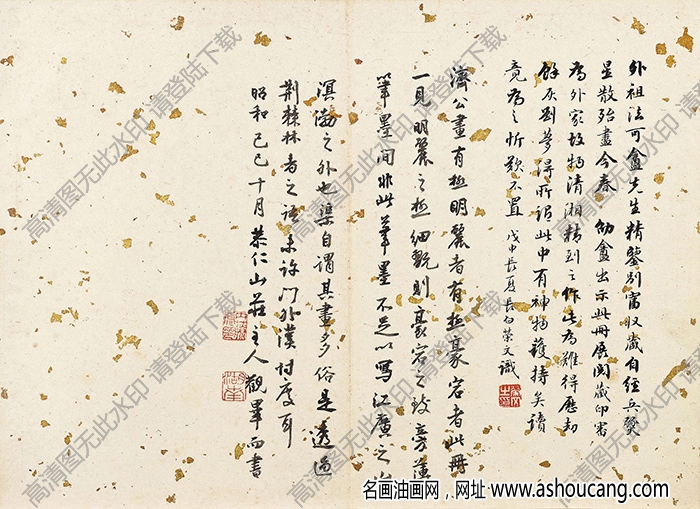 外祖法可盦先生精鑒別富收藏自經兵燹
星散殆盡今春 劬盦出示此冊展閱藏印審
為外家故物清湘精到之作此為難得歷劫
餘灰劉夢得所謂此中有神物護持矣讀
竟為之忻歎不置 戊申長夏長白榮文識
濟公畫有極明麗者有極豪宕者此冊
一見明麗之極細甄則豪宕之致旁薄
筆墨間非此筆墨不足以寫江廣之
溟渤之外也渠自謂其畫多俗是透過
荆棘林者之語未許門外漢忖度耳
昭和己巳十月 恭仁山莊主人觀畢而書
高清图无此水印 请登陆下载
名画油画网，网址www.ashoucang.com